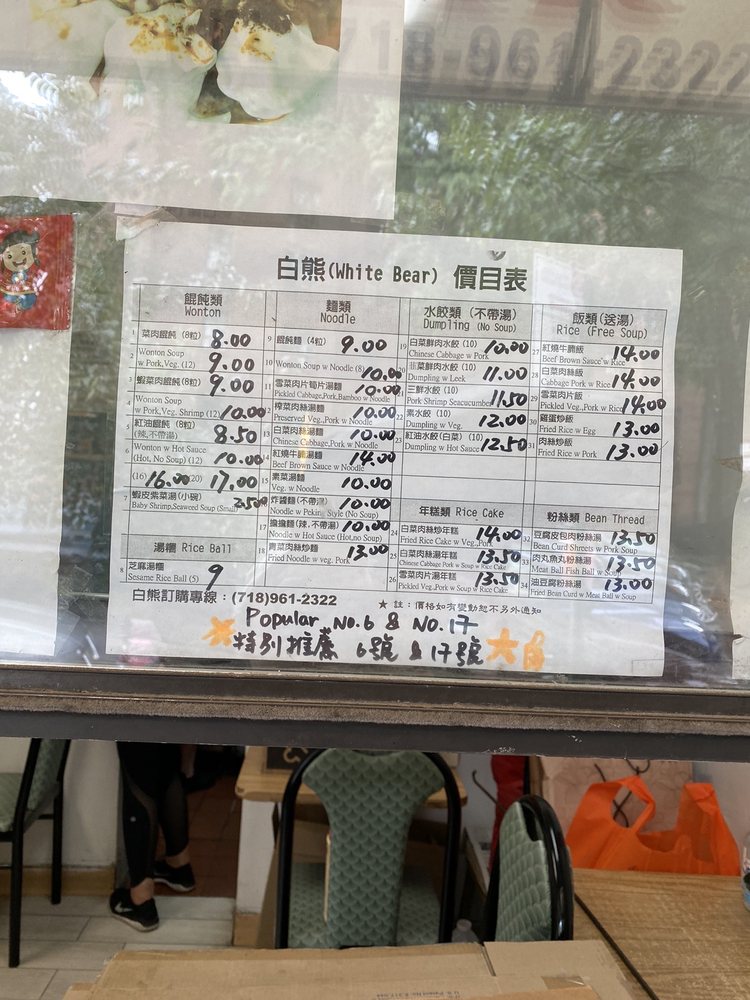 718-961-2322
白熊(White Bear) 價目表
餛飩類
Wonton
1 菜肉餛飩 (8粒) 8.00
2 Wonton Soup
w Pork,Veg. (12) 9.00
3 蝦菜肉餛飩(8粒) 9.00
4 Wonton Soup
w Pork,Veg, Shrimp (12) 10.00
5 紅油餛飩 (8粒)
(辣,不帶湯) 8.50
6 Wonton w Hot Sauce
(Hot, No Soup) (12) 10.00
(16) 16.00 (20) 17.00
7 蝦皮紫菜湯(小碗)
Baby Shrimp,Seaweed Soup (Small) 2.50
湯糰 Rice Ball
8 芝麻湯糰
Sesame Rice Ball (5) 9
麵類
Noodle
9 餛飩麵 (4粒) 9.00
10 Wonton w Noodle Soup (8) 10.00
11 雪菜肉片筍片湯麵 10.00
Pickled Cabbage,Pork,Bamboo w Noodle
12 榨菜肉絲湯麵
Preserved Veg.,Pork w Noodle 10.00
13 白菜肉絲湯麵
Chinese Cabbage,Pork w Noodle 10.00
14 紅燒牛腩湯麵
Beef Brown Sauce w Noodle 14.00
15 素菜湯麵
Veg. w Noodle 10.00
16 炸醬麵(不帶湯)
Noodle w Peking Style (No Soup) 10.00
17 擔擔麵(辣, 不帶湯)
Noodle w Hot Sauce (Hot,no Soup) 10.00
18 青菜肉絲炒麵
Fried Noodle w veg. Pork 13.00
水餃類 (不帶湯)
Dumpling (No Soup)
19 白菜鮮肉水餃 (10)
Chinese Cabbage w Pork 10.00
20 韮菜鮮肉水餃 (10)
Dumpling w Leek 11.00
21 三鮮水餃 (10)
Pork Shrimp Seacucumber 11.50
22 素水餃 (10)
Dumpling w Veg. 12.00
23 紅油水餃(白菜) (10)
Dumpling w Hot Sauce 12.50
年糕類 Rice Cake
24 白菜肉絲炒年糕
Fried Rice Cake w Veg.,Pork 14.00
25 白菜肉絲湯年糕
Chinese Cabbage Pork w Soup w Rice Cake 13.50
26 雪菜肉片湯年糕
Pickled Veg.,Pork w Soup w Rice Cake 13.50
飯類(送湯)
Rice (Free Soup)
27 紅燒牛腩飯
Beef Brown Sauce w Rice 14.00
28 白菜肉絲飯
Cabbage Pork w Rice 14.00
29 雪菜肉片飯
Pickled Veg.,Pork w Rice 14.00
30 雞蛋炒飯
Fried Rice w Egg 13.00
31 肉絲炒飯
Fried Rice w Pork 13.00
粉絲類 Bean Thread
32 豆腐皮包肉粉絲湯
Bean Curd Shreets w Pork Soup 13.50
33 肉丸魚丸粉絲湯
Meat Ball Fish Ball w Soup 13.50
34 油豆腐粉絲湯
Fried Bean Curd w Meat Ball w Soup 13.00
白熊訂購專線：(718)961-2322
★ 註：價格如有變動恕不另外通知
Popular No.6 & No.17
特別推薦 6號 & 17號